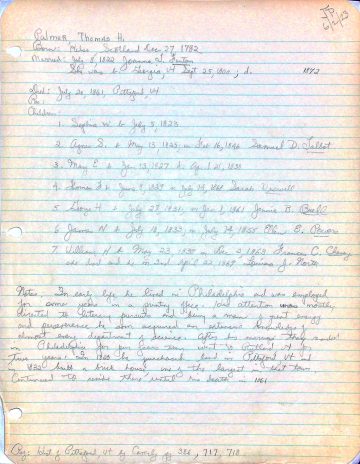 Palmer Thomas H.
Born: Kelso Scotland Dec 27, 1782
Married: July 8, 1822 Joanna W. Fenton
She was b Georgia, Vt Sept 25, 1800; d. 1872
Died: July 20, 1861, Pittsford, Vt
Children:
1. Sophia W b July 5, 1823
2. Agnes S. b May 13, 1825; m Feb 16, 1846 Samuel D. Talbot
3. May E b Jan 13, 1827; d April 21, 1831
4. Thomas F b June 1829 m Sarah
5. George H b July 27, 1831; m Jan 1, 1861 Jennie B. Buell
6. James N b July 18, 1833; m July 1855 E.
7. William H b May 23, 1835 m Dec 2 1863 Frances C.
who died and he m 2nd April 22 1867 Louisa J. North
Notes: In early life he lived in Philadelphia and was employed
for some years in a printing office. His attention was mostly
directed to literary pursuits and being a man of great energy
and perseverance he soon acquired an extensive knowledge of
almost every department of science. After his marriage they resided
in Philadelphia for four years then went to Vt for
two years. In 1828 he purchased land in Pittsford Vt and
in 1832 built a brick house one of the largest in that town.
Continued to reside there until his death in 1861
Hist of Pittsford Vt by Caverly pg 386, 717, 718